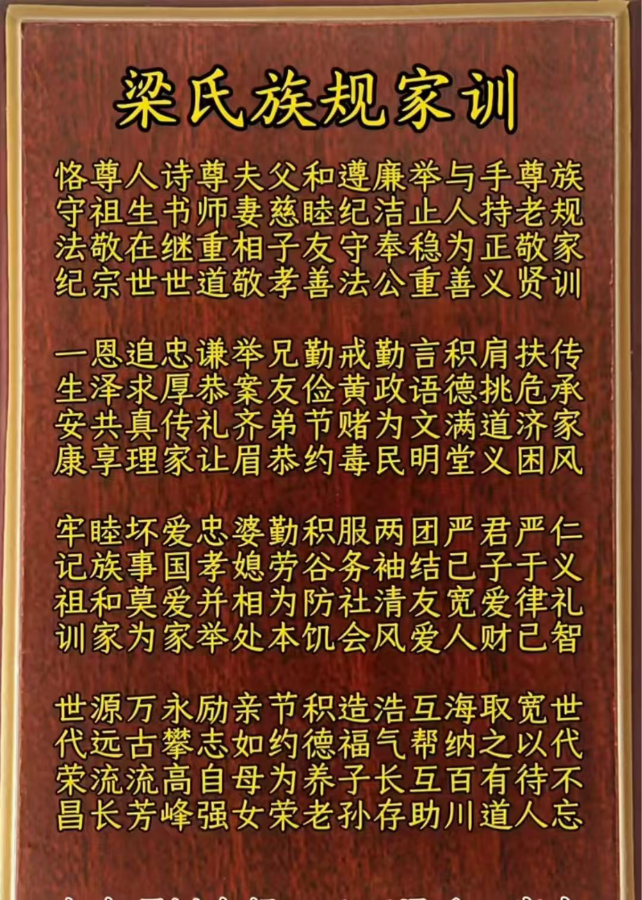 梁氏族规家训
族规家训 传承家风 仁义礼智 世代不忘
尊老敬贤 扶危济困 严于律己 宽以待人
手持正义 肩挑道义 君子爱财 取之有道
与人为善 积德满堂 严己宽人 海纳百川
举止稳重 言语文明 团结友爱 互帮互助
廉洁奉公 勤政为民 两袖清风 浩气长存
遵纪守法 戒黄赌毒 服务社会 造福子孙
和睦友善 勤俭节约 积谷防饥 积德养老
父慈子孝 兄友弟恭 勤劳为本 节约为荣
夫妻相敬 举案齐眉 婆媳相处 亲如母女
尊师重道 谦恭礼让 忠孝并举 励志自强
诗书继世 忠厚传家 爱国爱家 永攀高峰
人生在世 追求真理 坏事莫为 万古流芳
尊祖敬宗 恩泽共享 睦族和家 源远流长
恪守法纪 一生安康 牢记祖训 世代荣昌